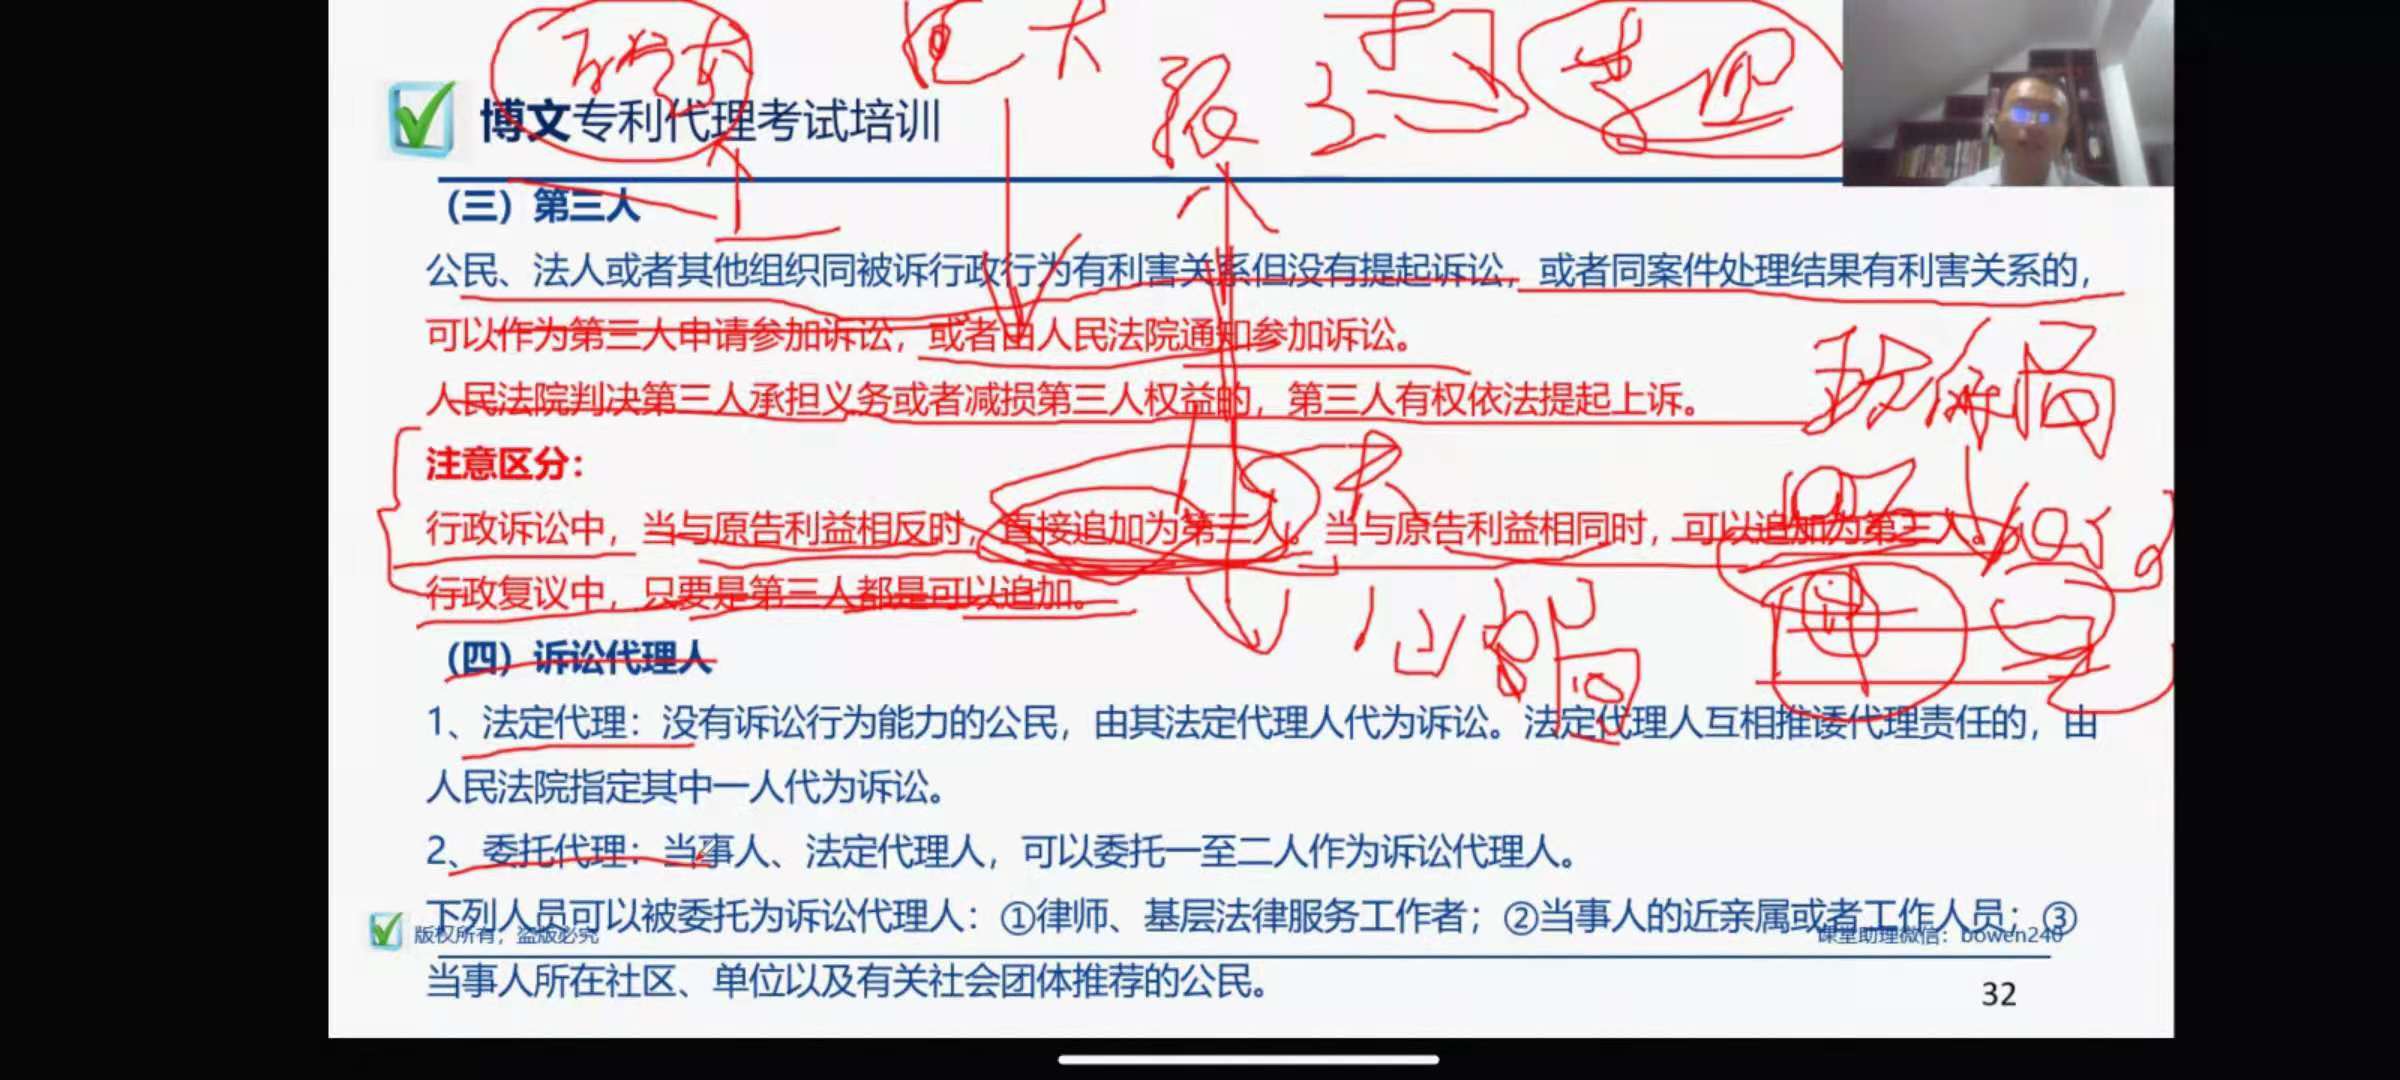 博文专利代理考试培训
（三）第三人
公民、法人或者其他组织同被诉行政行为有利害关系但没有提起诉讼，或者同案件处理结果有利害关系的，
可以作为第三人申请参加诉讼，或者由人民法院通知参加诉讼。
人民法院判决第三人承担义务或者减损第三人权益的，第三人有权依法提起上诉。
注意区分：
行政诉讼中，当与原告利益相反时，直接追加为第三人。当与原告利益相同时，可以追加为第三人。
行政复议中，只要是第三人都是可以追加。
（四）诉讼代理人
1、法定代理：没有诉讼行为能力的公民，由其法定代理人代为诉讼。法定代理人互相推诿代理责任的，由
人民法院指定其中一人代为诉讼。
2、委托代理：当事人、法定代理人，可以委托一至二人作为诉讼代理人。
下列人员可以被委托为诉讼代理人：①律师、基层法律服务工作者；②当事人的近亲属或者工作人员；③
版权所有，盗版必究
课堂助理微信：bowen240
当事人所在社区、单位以及有关社会团体推荐的公民。
32